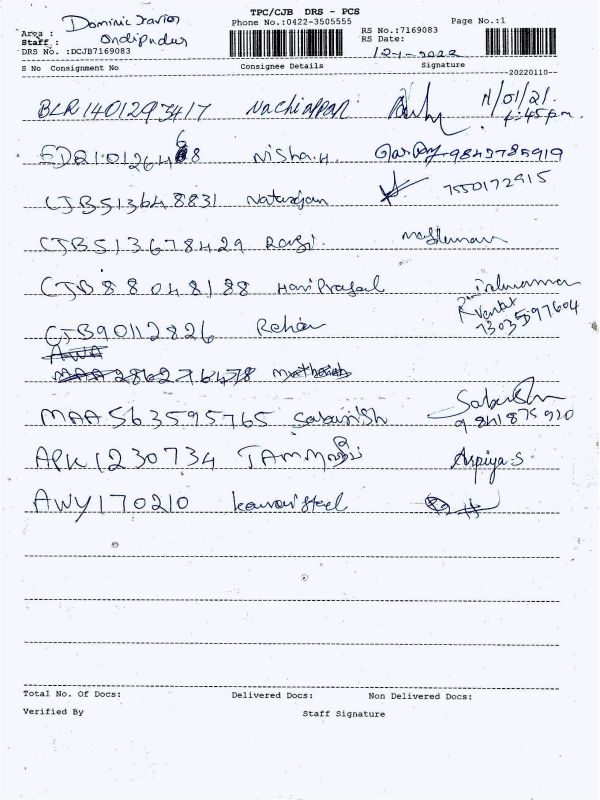 TPC/CJB DRS - PCS
Phone No.:0422-3505555 Page No.:1
Dominic Xavier
Area : Ondipudur
Staff :
DRS No. :DCJB7169083
RS No.:7169083
RS Date: 12-1-2022
S No Consignment No Consignee Details Signature
--20220110--
BLR1401293417 Nachiappan 11/01/21.
6:45 pm.
Nisha.H. 9843785919
CJB513648831 Natarajan 7550172915
CJB513678429 Ravi.
CJB88048188 Hari Prasad
R Venkat
CJB90112826 Rehan 7303597604
AWA
MAA286276478
MAA563595765 Sabarish
9841875920
APK1230734 Arpiya-S
AWY170210 kauvari steel
Total No. Of Docs: Delivered Docs: Non Delivered Docs:
Verified By Staff Signature